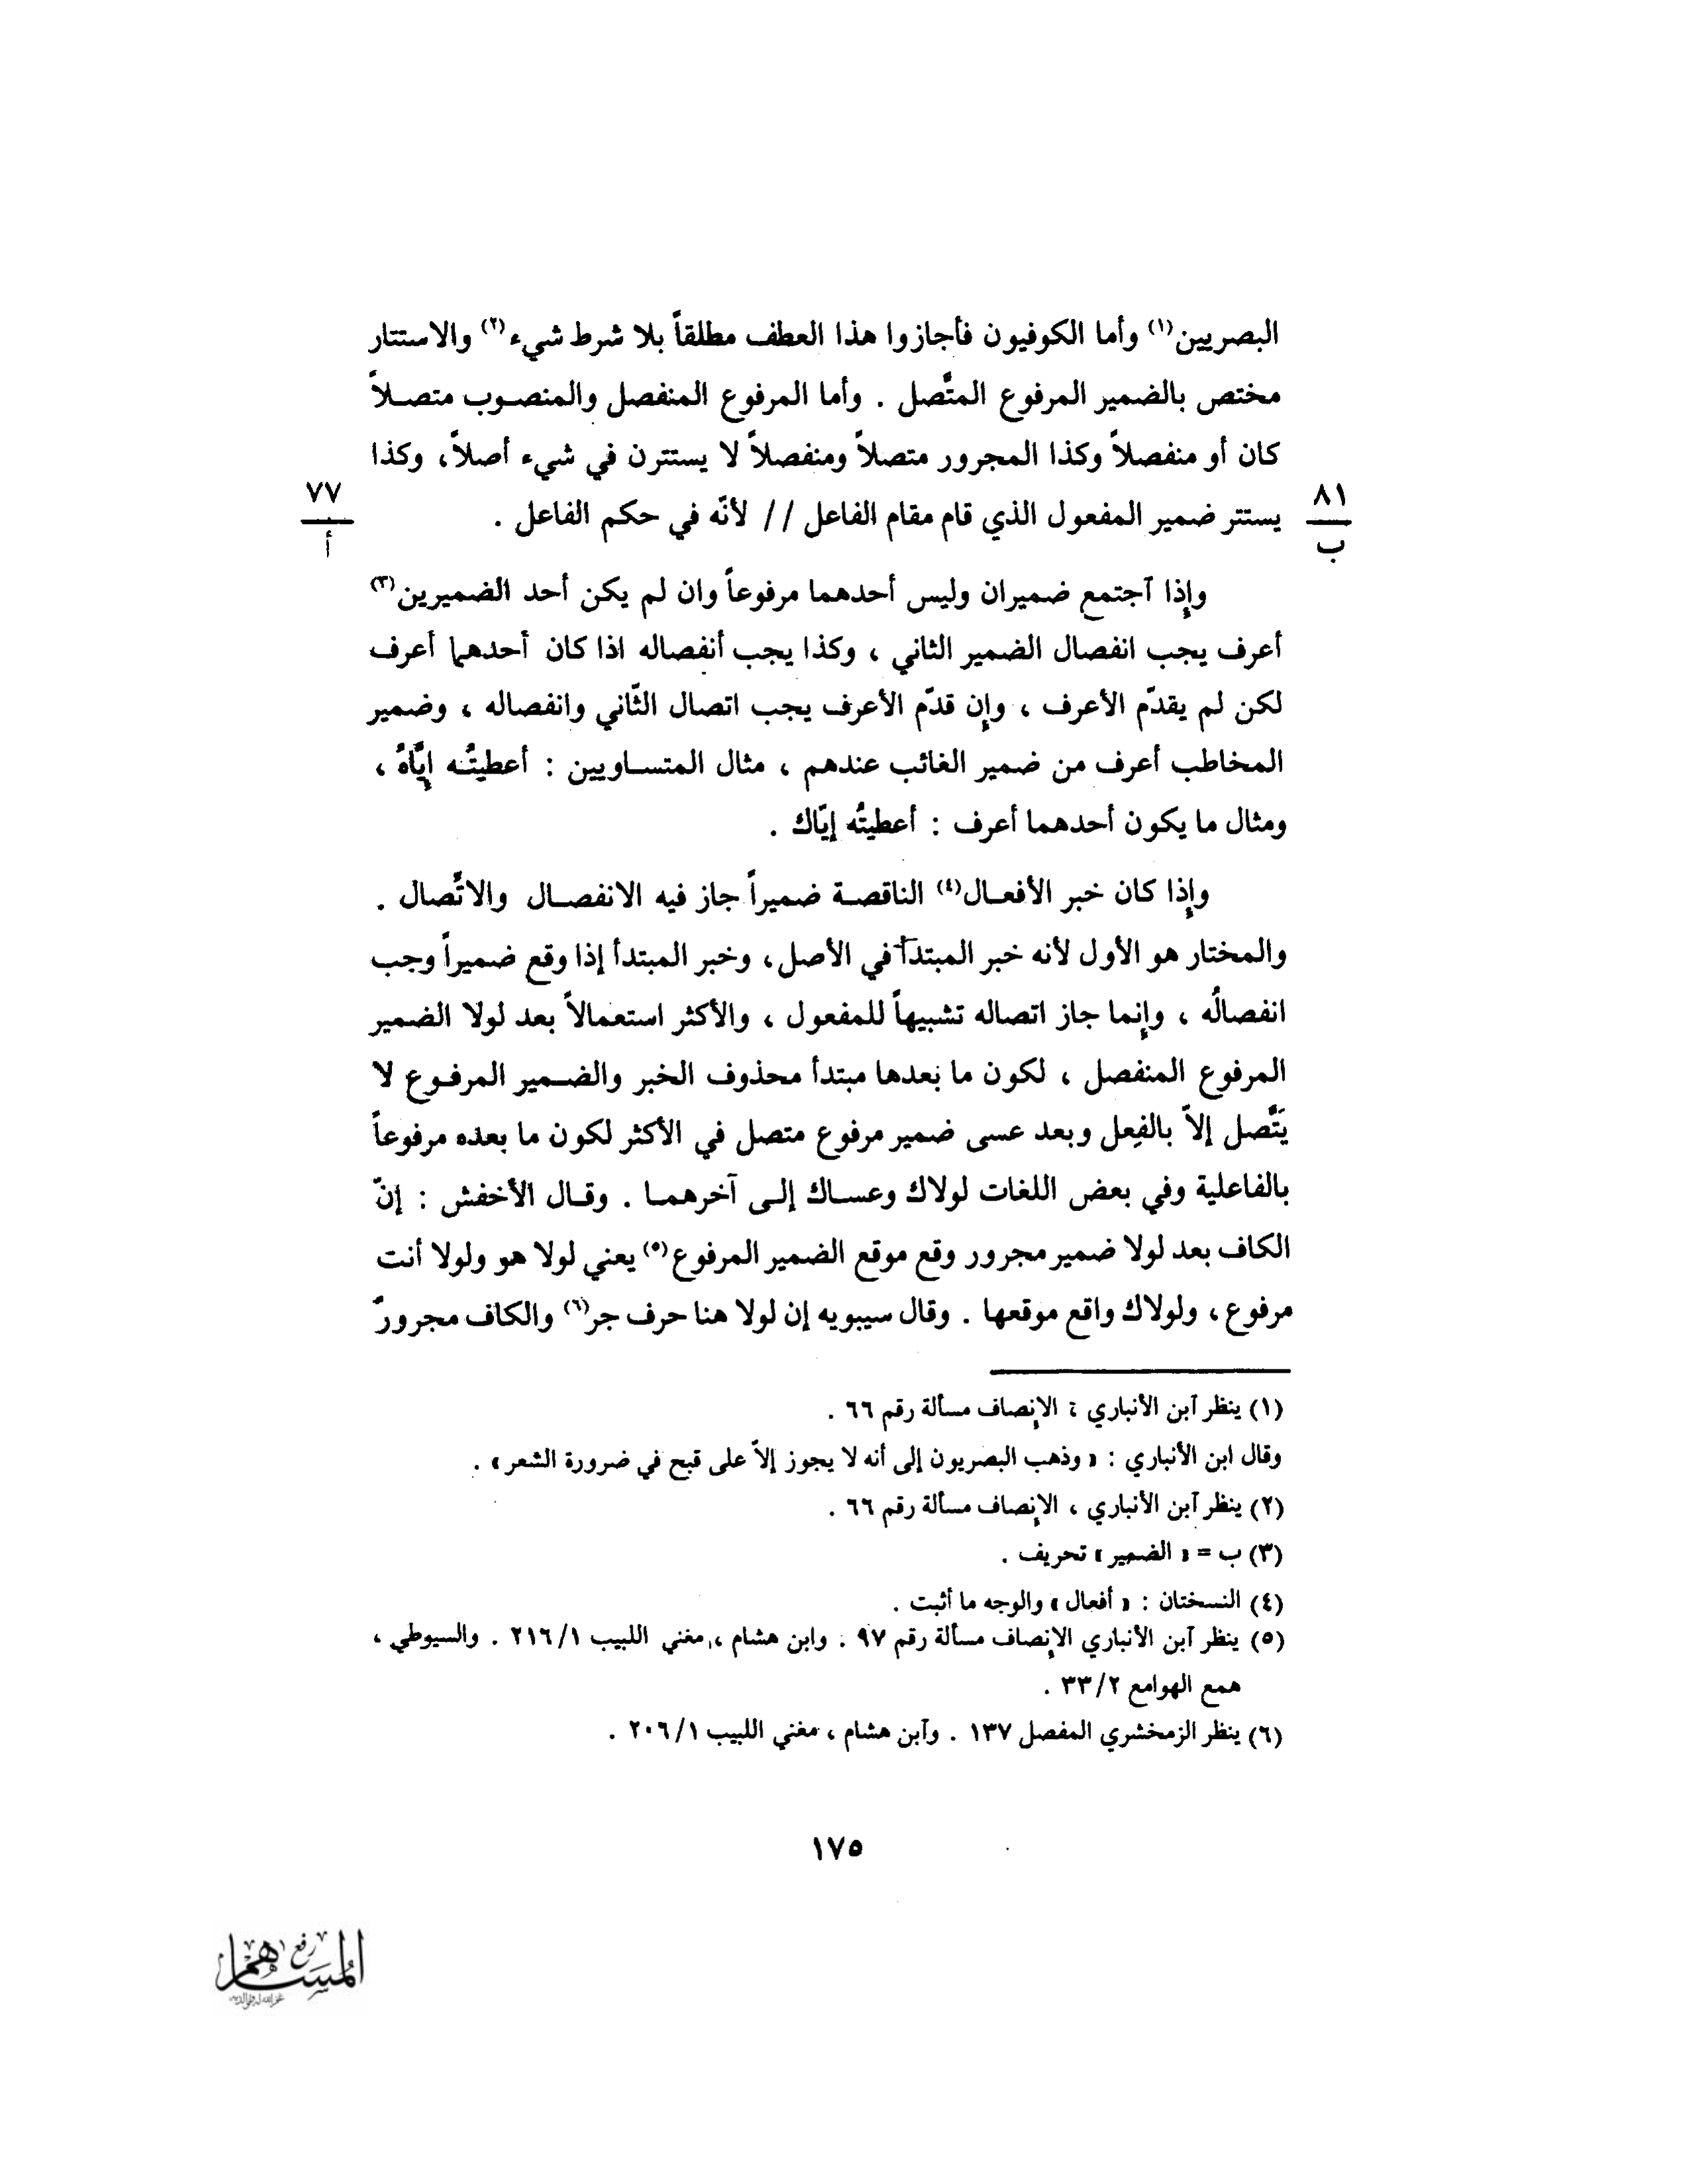 البصريين(١) وأما الكوفيون فأجازوا هذا العطف مطلقاً بلا شرط شيء(٢) والاستتار
مختص بالضمير المرفوع المتَّصل . وأما المرفوع المنفصل والمنصوب متصلاً
كان أو منفصلاً وكذا المجرور متصلاً ومنفصلاً لا يستترن في شيء أصلاً، وكذا
يستتر ضمير المفعول الذي قام مقام الفاعل // لأنّه في حكم الفاعل .
٨١
ب
٧٧
أ
وإذا آجتمع ضميران وليس أحدهما مرفوعاً وان لم يكن أحد الضميرين(٣)
أعرف يجب انفصال الضمير الثاني ، وكذا يجب أنفصاله اذا كان أحدهما أعرف
لكن لم يقدّم الأعرف ، وإن قدّم الأعرف يجب اتصال الثّاني وانفصاله ، وضمير
المخاطب أعرف من ضمير الغائب عندهم ، مثال المتساويين : أعطيتُه إيَّاهُ ،
ومثال ما يكون أحدهما أعرف : أعطيتُه إيّاك .
وإذا كان خبر الأفعال(٤) الناقصة ضميراً جاز فيه الانفصال والاتَّصال .
والمختار هو الأول لأنه خبر المبتدأ في الأصل، وخبر المبتدأ إذا وقع ضميراً وجب
انفصالُه ، وإنما جاز اتصاله تشبيهاً للمفعول ، والأكثر استعمالاً بعد لولا الضمير
المرفوع المنفصل ، لكون ما بعدها مبتدأ محذوف الخبر والضمير المرفوع لا
يَتَّصل إلاّ بالفِعل وبعد عسى ضمير مرفوع متصل في الأكثر لكون ما بعده مرفوعاً
بالفاعلية وفي بعض اللغات لولاك وعساك إلى آخرهما . وقال الأخفش : إنّ
الكاف بعد لولا ضمير مجرور وقع موقع الضمير المرفوع(٥) يعني لولا هو ولولا أنت
مرفوع، ولولاك واقع موقعها . وقال سيبويه إن لولا هنا حرف جر(٦) والكاف مجرورٌ
(١) ينظر آبن الأنباري ؛ الإنصاف مسألة رقم ٦٦ .
وقال ابن الأنباري : « وذهب البصريون إلى أنه لا يجوز إلاّ على قبح في ضرورة الشعر » .
(٢) ينظر آبن الأنباري ، الإنصاف مسألة رقم ٦٦ .
(٣) ب = « الضمير » تحريف .
(٤) النسختان : « أفعال » والوجه ما أثبت .
(٥) ينظر آبن الأنباري الإنصاف مسألة رقم ٩٧ . وابن هشام ، مغني اللبيب ٢١٦/١ . والسيوطي ،
همع الهوامع ٣٣/٢ .
(٦) ينظر الزمخشري المفصل ١٣٧ . وآبن هشام ، مغني اللبيب ٢٠٦/١ .
١٧٥
رفع
المساهم
غفر الله له ولوالديه